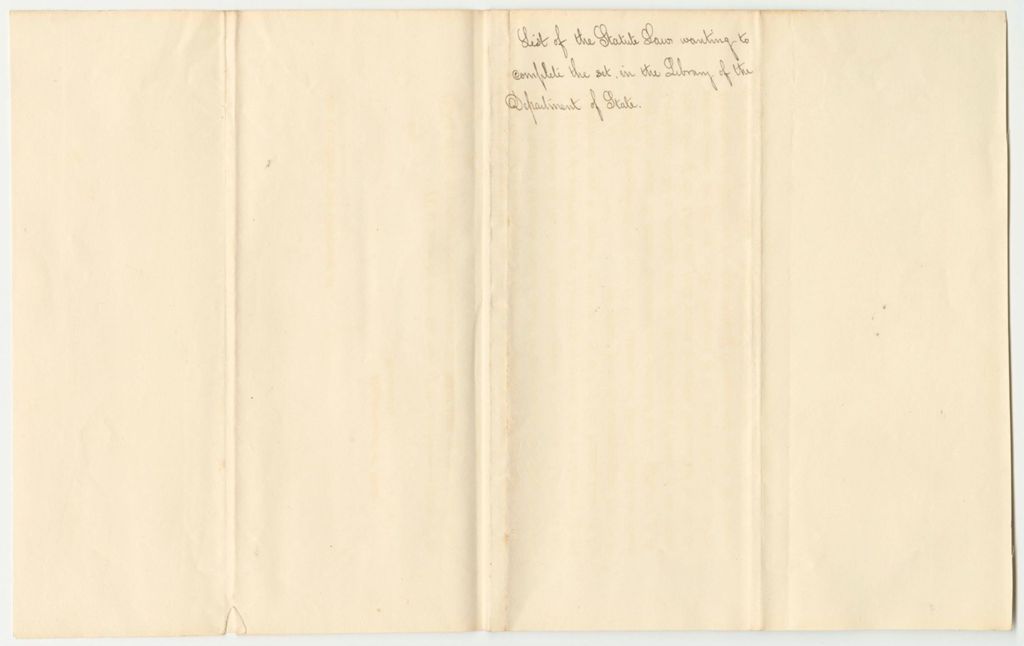 List of the Statute Laws wanting to
complete the set, in the Library of the
Department of State.